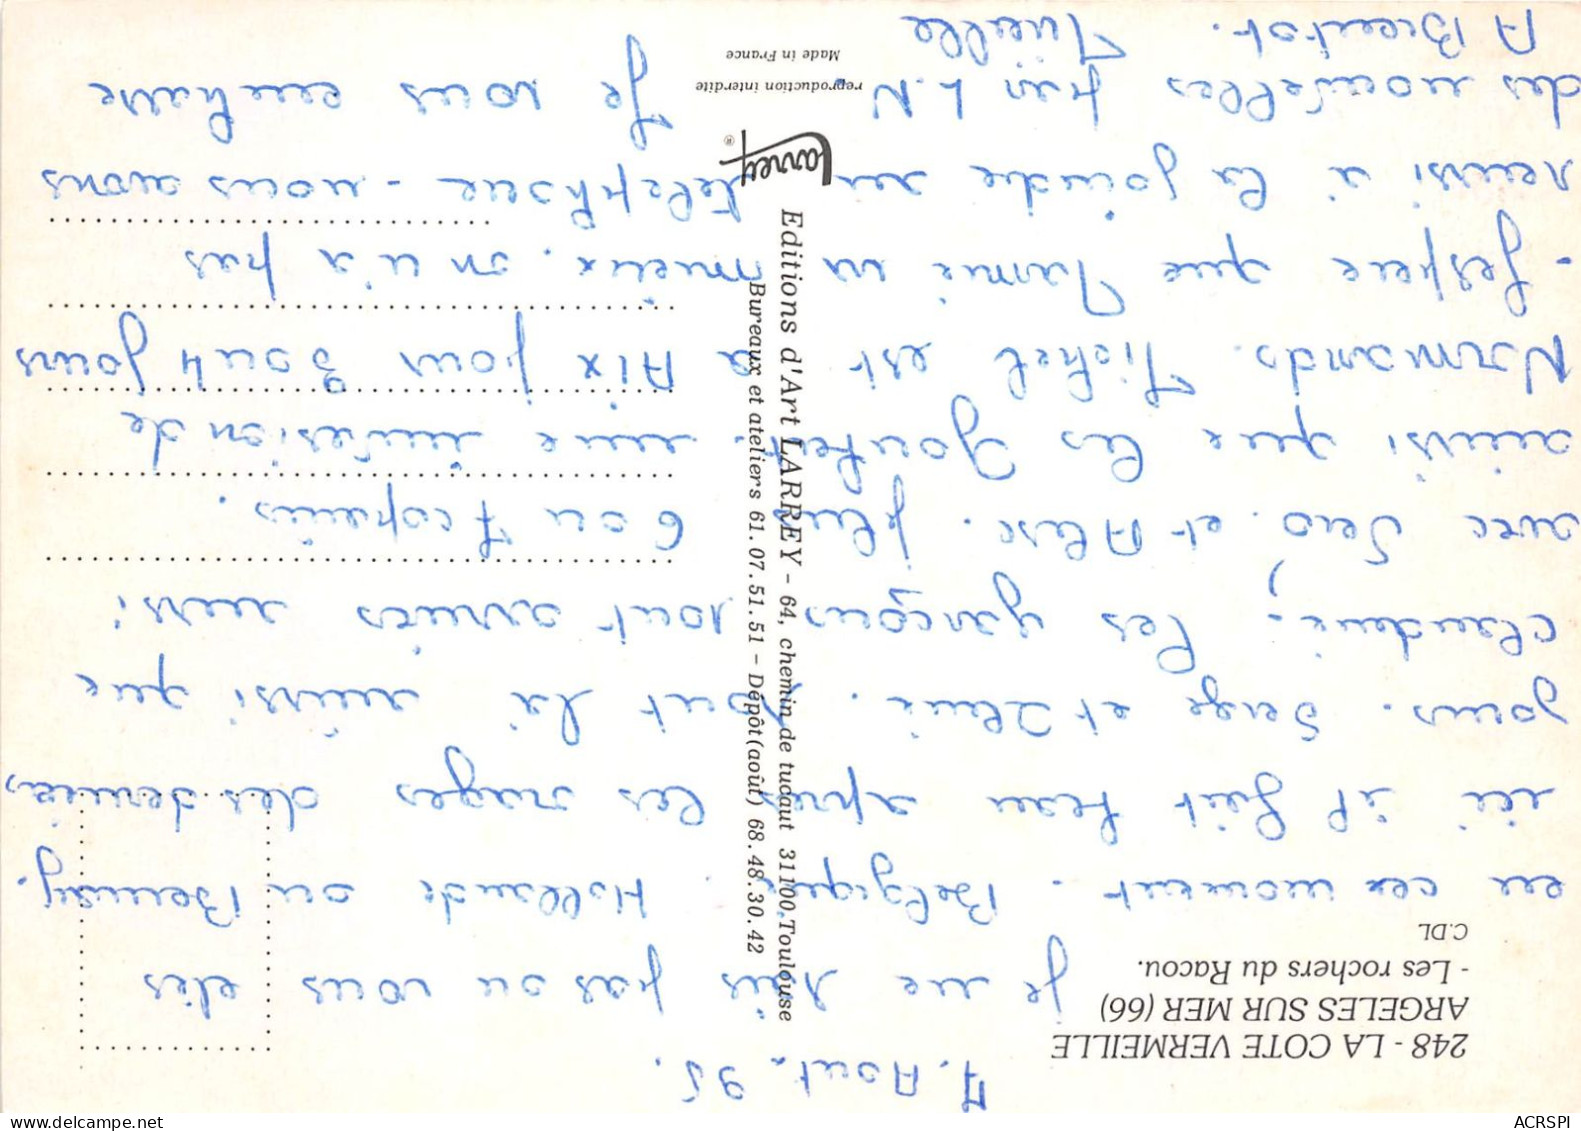 248 - LA COTE VERMEILLE
ARGELES SUR MER (66)
- Les rochers du Racou.
C.DL
7. Aout. 95.
je ne sais pas ou vous etes
en ce moment. Belgique. Hollande ou
ici il fait beau apres les orages des derniers
jours. Serge et sont là ainsi que
Claudeni. les garçons sont arrivés aussi
avec Seco. et Alex. plus 6 ou 7 copains.
ainsi que les une invasion de
Normands. Michel est a Aix pour 3 ou 4 jours
- J'espere que Mamie va mieux. on n'a pas
reussi à la joindre au telephone - nous avons
des nouvelles par L.N Je vous embrasse
A Bientot.
Editions d'Art LARREY - 64, chemin de tucaut 31100 Toulouse
Bureaux et ateliers 61.07.51.51 - Dépôt (août) 68.48.30.42
Larrey ®
reproduction interdite
Made in France
ACRSPI